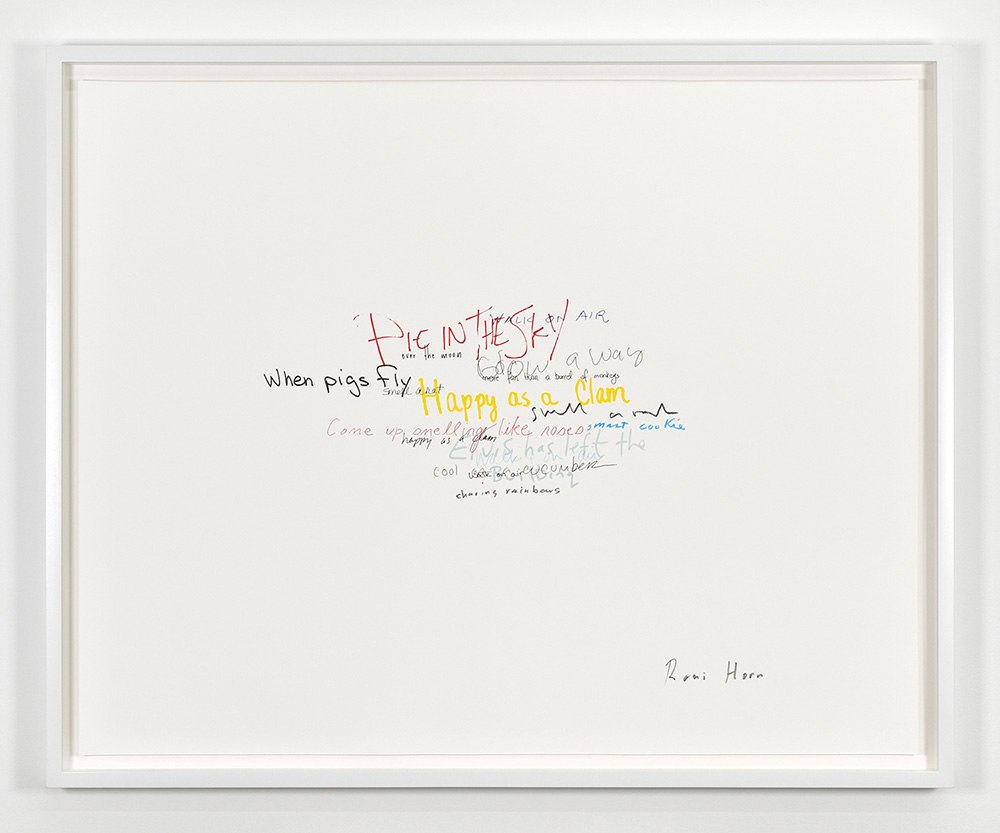 PIE IN THE SKY
WALK ON AIR
over the moon
Blow a way
more fun than a barrel of monkeys
When pigs fly
smell a rat
Happy as a Clam
smell a rat
Come up smelling like roses
smart cookie
happy as a clam
Elvis has left the
Building
cool as a cucumber
walk on air
chasing rainbows
Roni Horn